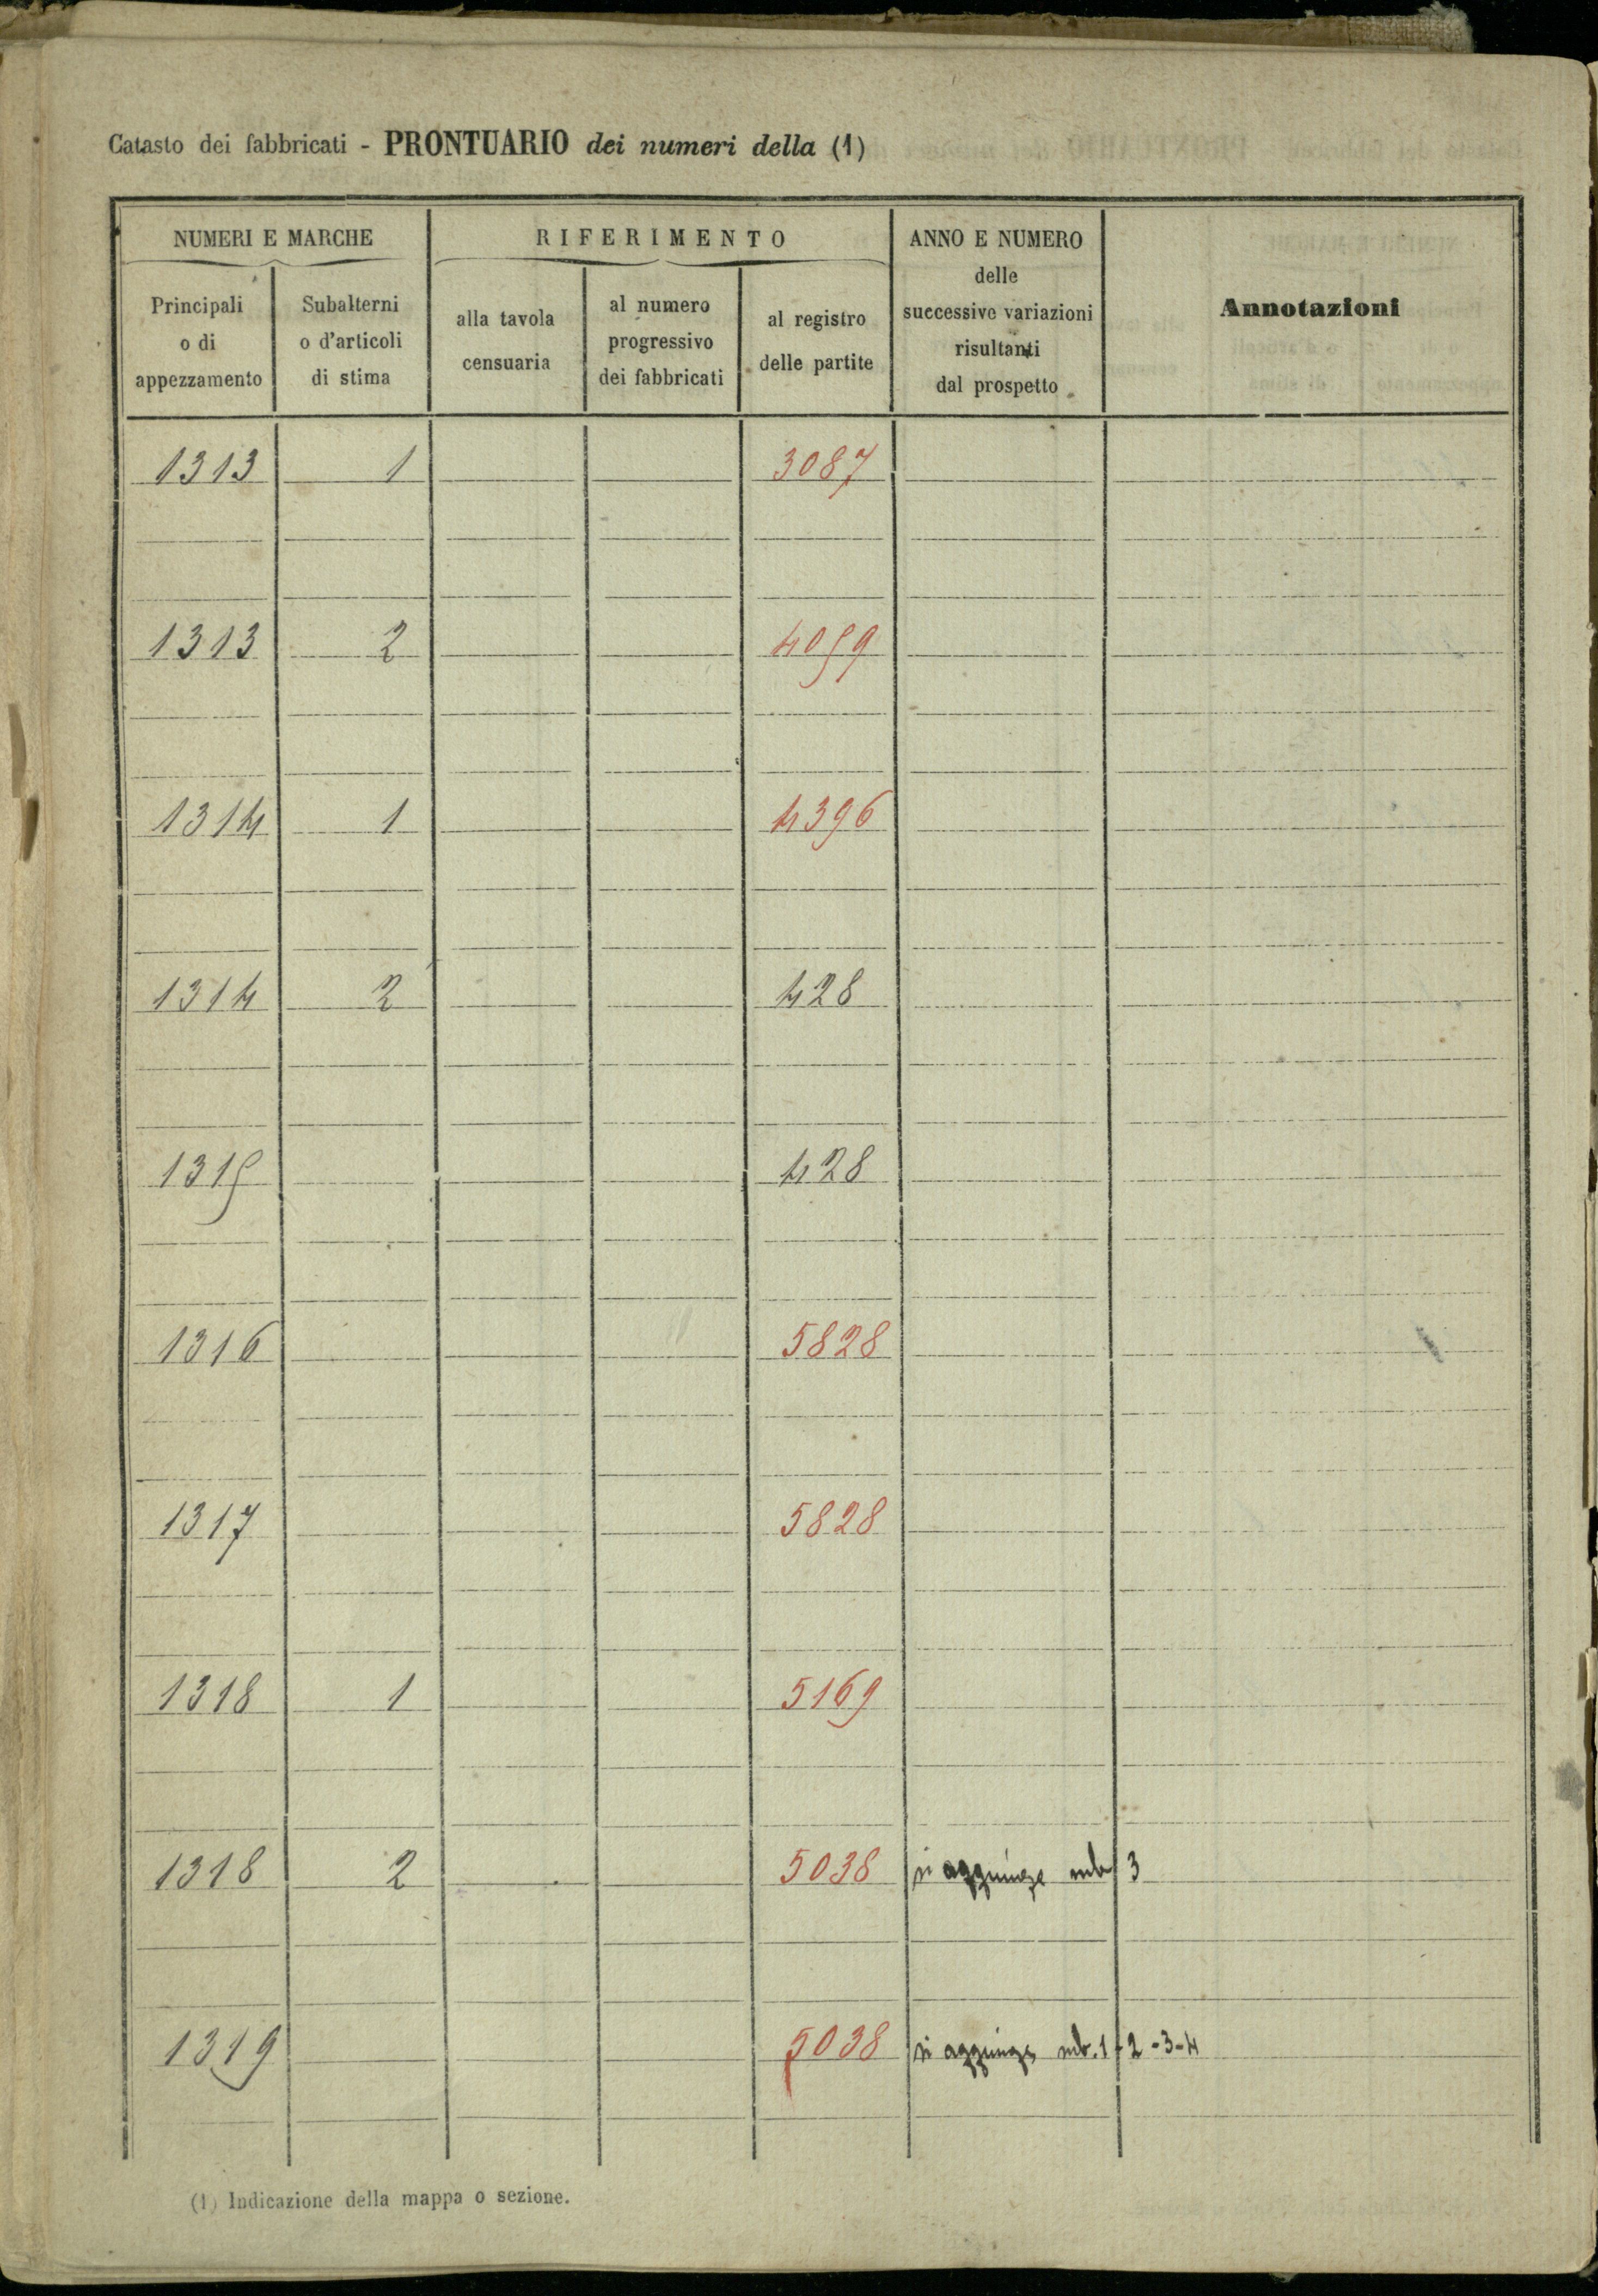 Catasto dei fabbricati - PRONTUARIO dei numeri della (1)
NUMERI E MARCHE
RIFERIMENTO
ANNO E NUMERO
delle
successive variazioni
risultanti
dal prospetto
Annotazioni
Principali
o di
appezzamento
Subalterni
o d'articoli
di stima
alla tavola
censuaria
al numero
progressivo
dei fabbricati
al registro
delle partite
1313 1 3087
1313 2 4059
1314 1 4396
1314 2 428
1315 428
1316 5828
1317 5828
1318 1 5169
1318 2 5038 si aggiunge sub 3
1319 5038 si aggiunge sub. 1-2-3-4
(1) Indicazione della mappa o sezione.